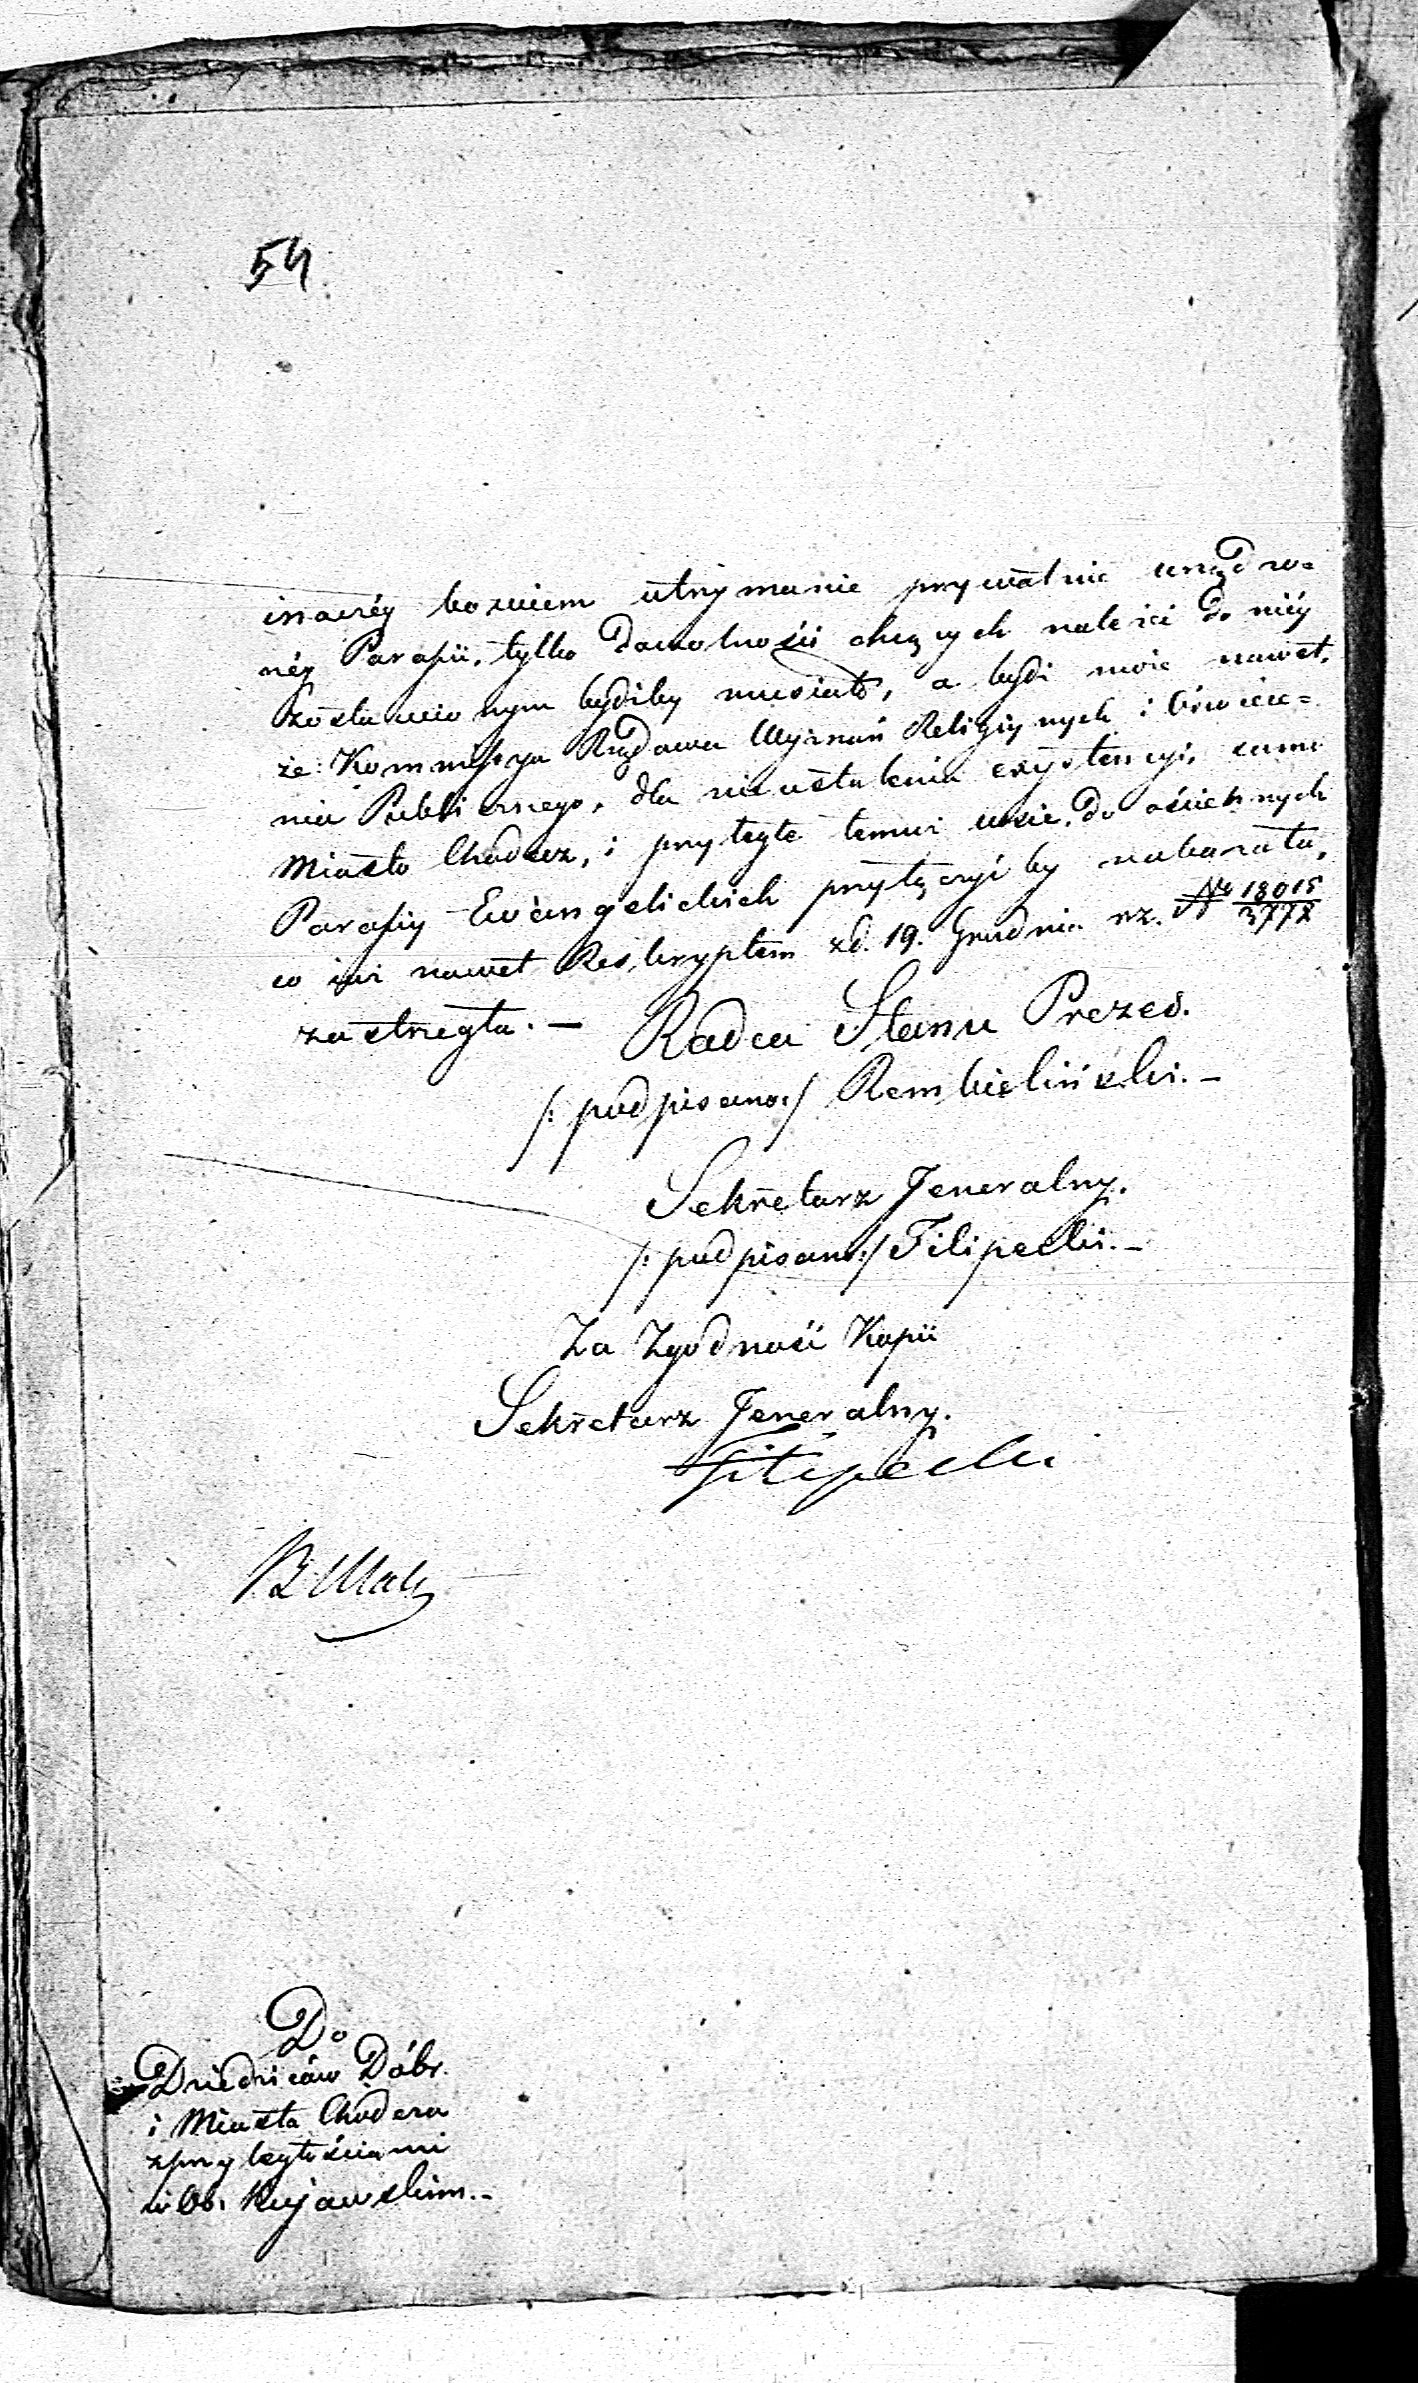 54
inaczéy bowiem utrzymanie prywatnie urządzo=
néy Parafii, tylko dowolności chcących należeć do niéy
zostawionym bydźby musiało, a bydź może nawet,
że Kommissya Rządowa Wyznań Religiynych i Oświece=
nia Publicznego, dla nieustalenia exystencyi, samo
Miasto Chodecz, i przyległe temuż wsie, do ościennych
Parafiy Ewangelickich przyłączyć by nakazała,
co iuż nawet Reskryptem z d. 19. Grudnia rz. No 18015/3778
zastrzegła. —
Radca Stanu Prezes.
/: podpisano :/ Rembieliński. —
Sekretarz Jeneralny.
/: podpisano :/ Filipecki. —
Za Zgodność Kopii
Sekretarz Jeneralny.
Filipecki
Do
Dziedziców Dóbr
i Miasta Chodcza
z przyległościami
w Ob. Kujawskim. —